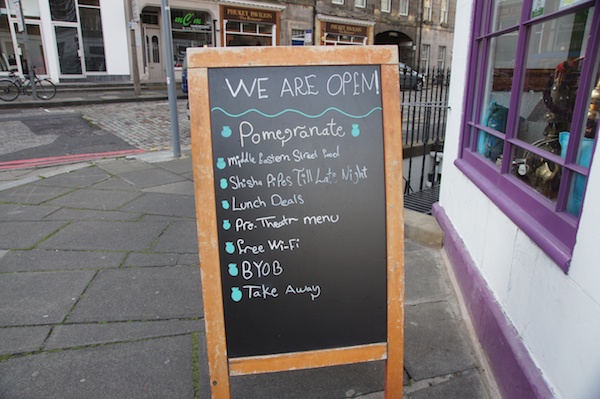 mCm
PHUKET PAVILION
WE ARE OPEN!
Pomegranate
Middle Eastern Street Food
Shisha Pipes Till Late Night
Lunch Deals
Pre-Theatr menu
Free Wi-Fi
BYOB
Take Away